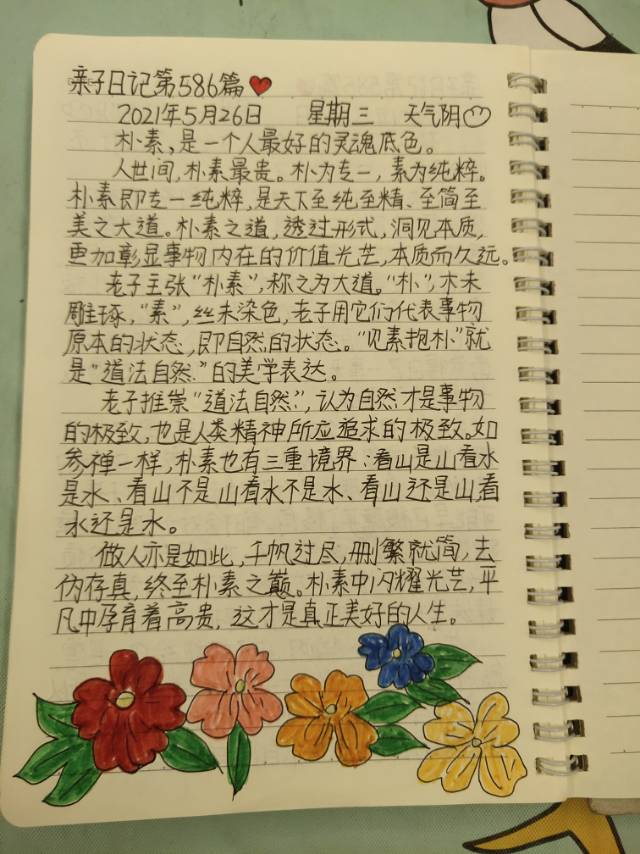 亲子日记第586篇
2021年5月26日 星期三 天气阴
朴素,是一个人最好的灵魂底色。
人世间,朴素最贵。朴为专一,素为纯粹。
朴素即专一纯粹,是天下至纯至精、至简至
美之大道。朴素之道,透过形式,洞见本质,
更加彰显事物内在的价值光芒,本质而久远。
老子主张“朴素”,称之为大道。“朴”,木未
雕琢,“素”,丝未染色,老子用它们代表事物
原本的状态,即自然的状态。“见素抱朴”就
是“道法自然”的美学表达。
老子推崇“道法自然”,认为自然才是事物
的极致,也是人类精神所应追求的极致。如
参禅一样,朴素也有三重境界:看山是山看水
是水、看山不是山看水不是水、看山还是山看
水还是水。
做人亦是如此,千帆过尽,删繁就简,去
伪存真,终至朴素之巅。朴素中闪耀光芒,平
凡中孕育着高贵,这才是真正美好的人生。